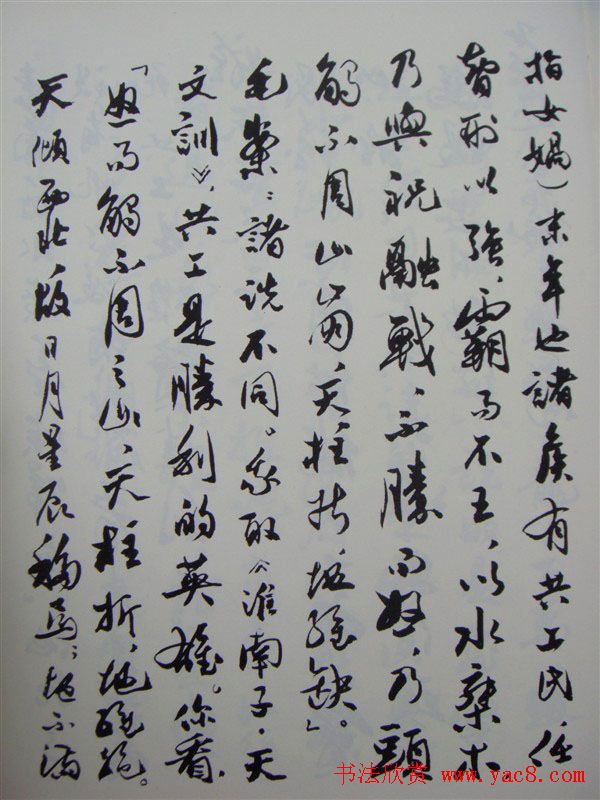 指女媧)末年也諸侯有共工氏任
智刑以強、霸而不王、以水乘木
乃與祝融戰、不勝而怒、乃頭
觸不周山崩、天柱折地維缺」。
毛案:諸說不同。我取《淮南子·天
文訓》,共工是勝利的英雄。你看,
「怒而觸不周之山、天柱折,地維絕。
天傾西北,故日月星辰移焉;地不滿
书法欣赏 www.yac8.com